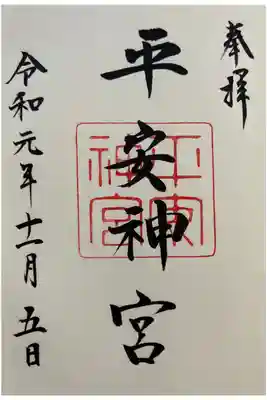 奉拝
平安神宮
平安
神宮
令和元年十一月五日